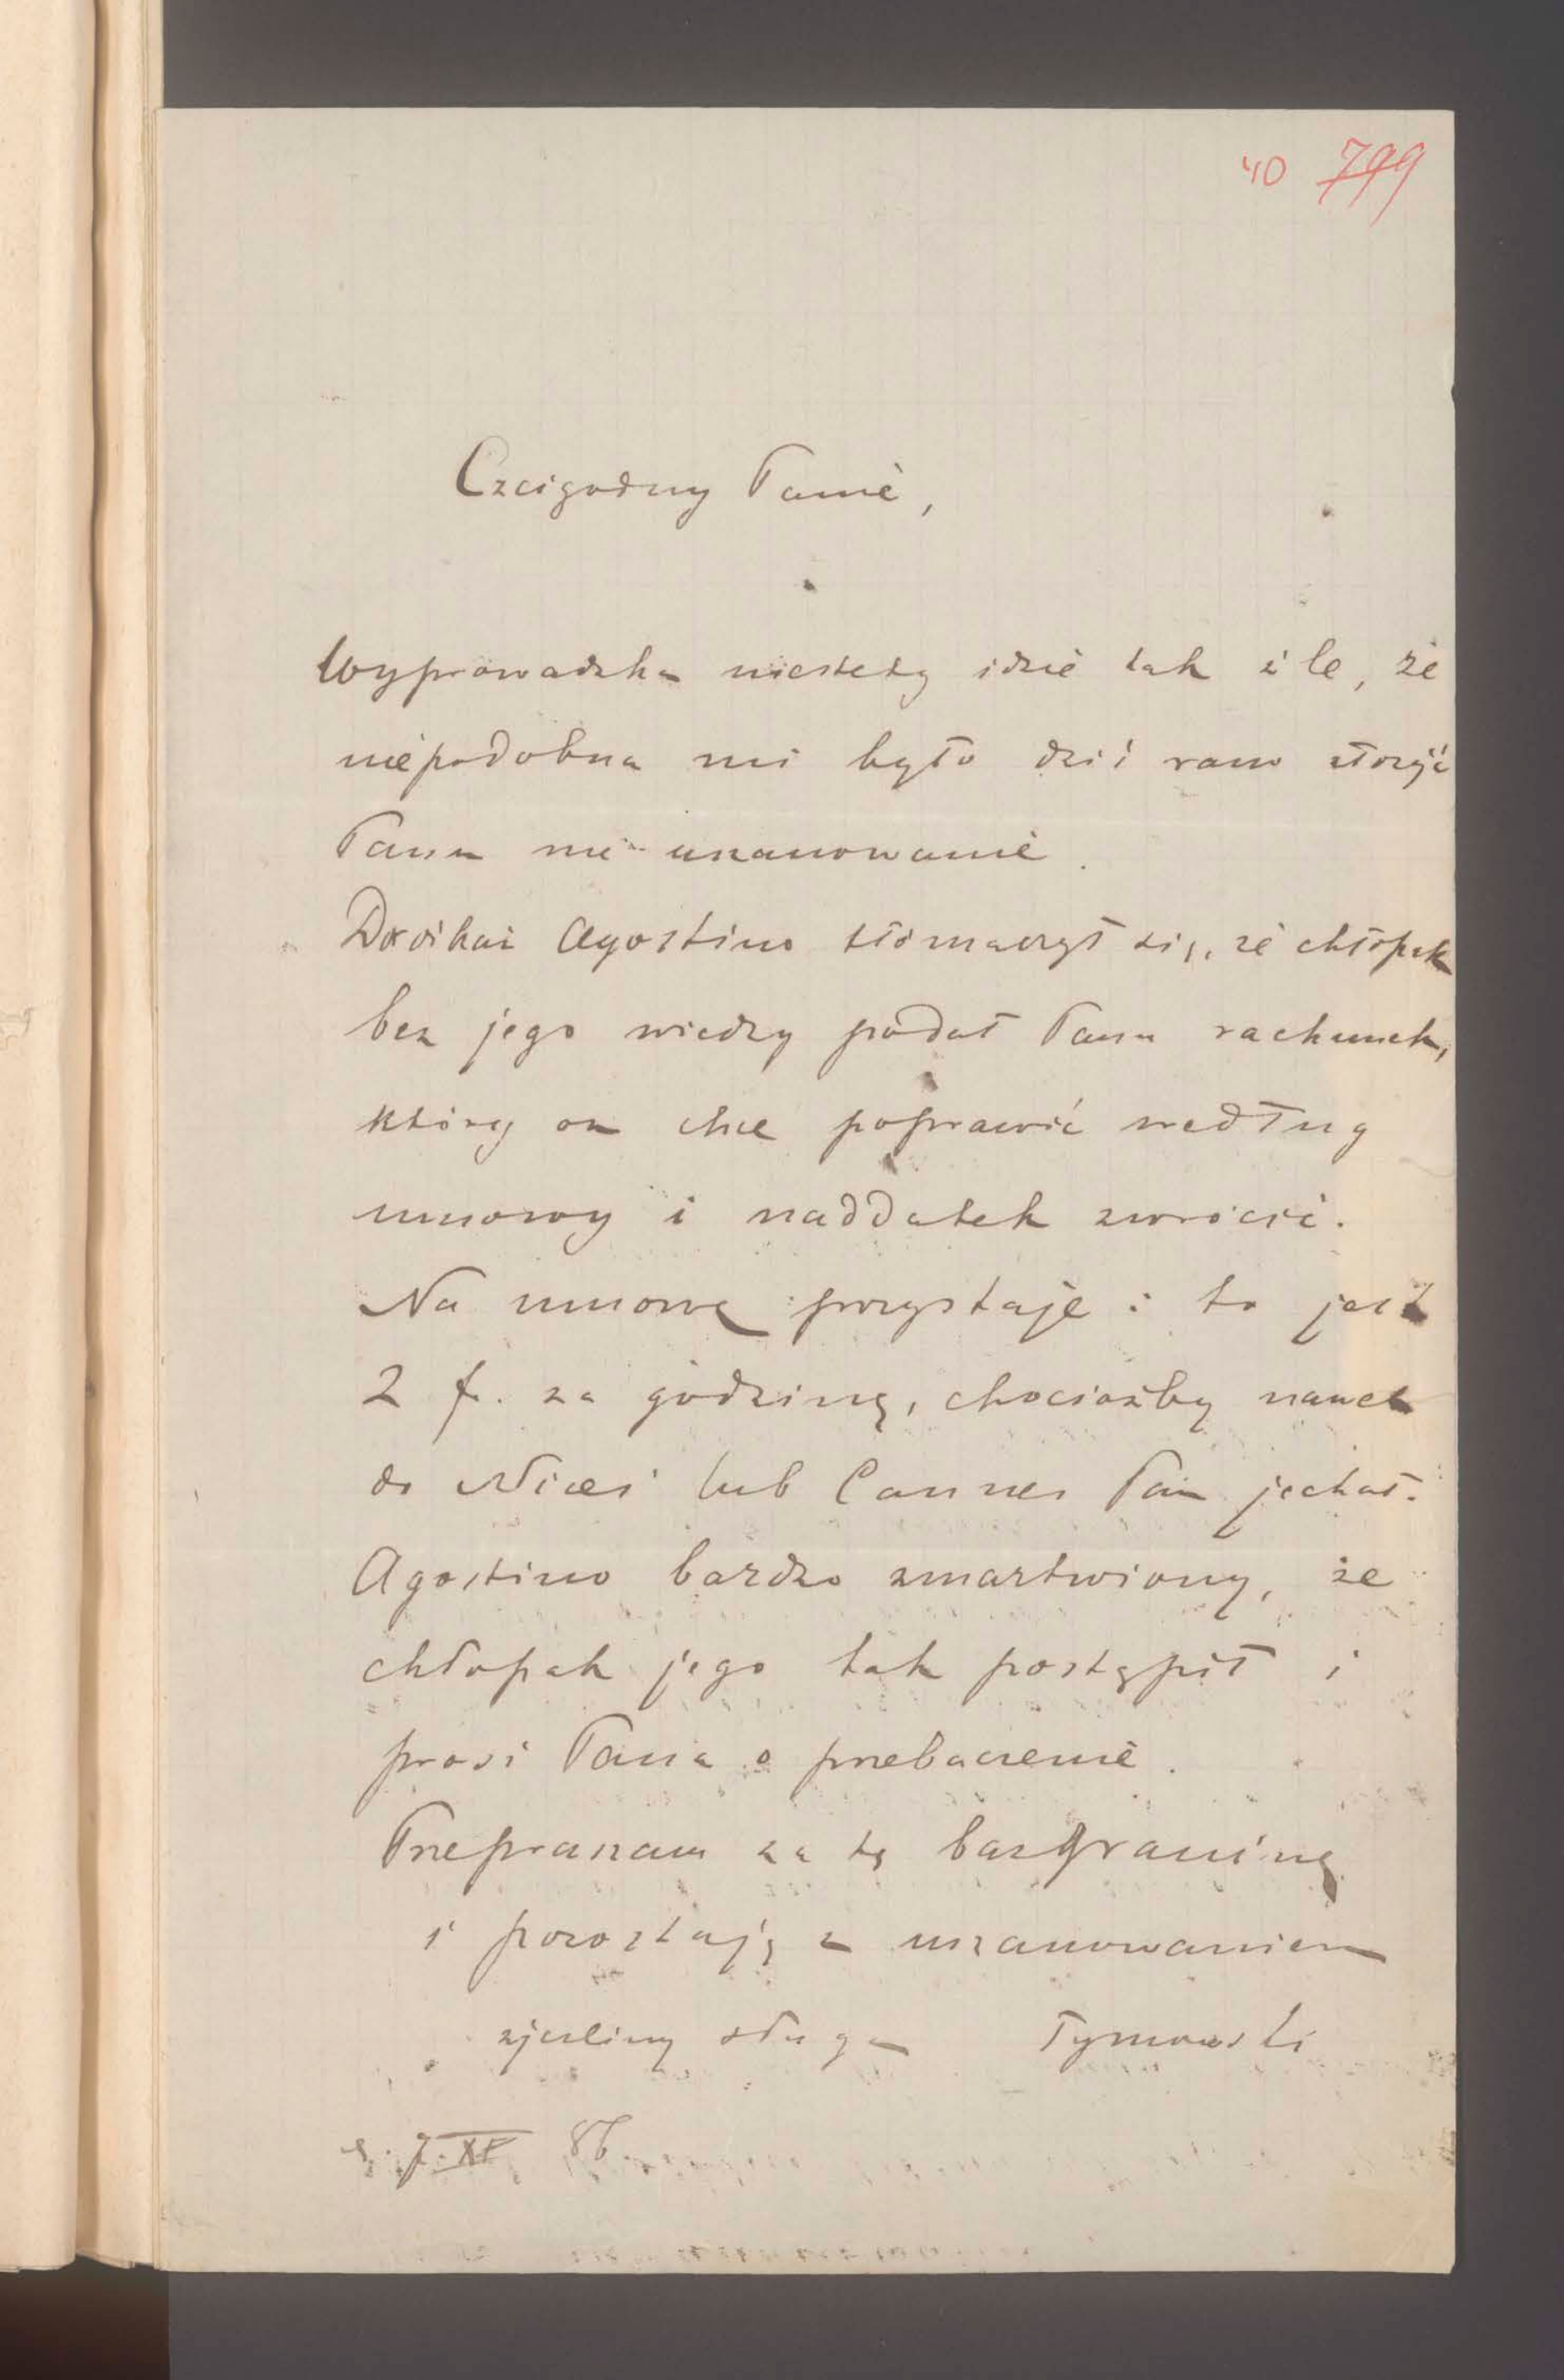 40 799
Czcigodny Panie,
Wyprowadzka niestety idzie tak źle, że
niepodobna mi było dziś rano złożyć
Panu me uszanowanie.
Agostino tłómaczył się, że chłopak
bez jego wiedzy podał Panu rachunek,
który on chce poprawić według
umowy i naddatek zwrócić.
Na umowę przystaje: to jest
2 f. za godzinę, chociażby nawet
do Nicei lub Cannes Pan jechał.
Agostino bardzo zmartwiony, że
chłopak jego tak postąpił i
prosi Pana o przebaczenie.
Przepraszam za tę bazgraninę
i pozostaję z uszanowaniem
zyczliwy sługa Tymowski
7. XI 86